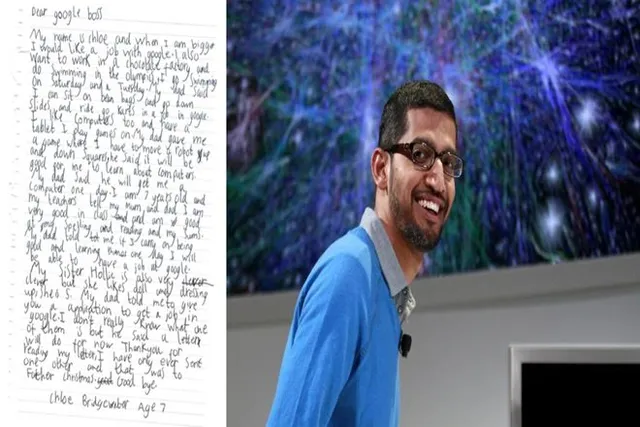 Dear google boss
My name is chloe and when I am bigger
I would like a job with google. I also
want to work in a chocolate factory and
do swimming in the olympics. I go swimming
on saturday and a Tuesday. My dad said
I can sit on bean bags and go down
slides and ride go karts in a job in google.
I like computers too and have a
tablet I play games on. My dad gave me
a game where I have to move a robot up
and down squares, he said it will be
good for me to learn about computers.
My dad said he will get me a
computer one day. I am 7 years old and
my teachers tell my mum and dad I am
very good in class and am good
at my spelling and reading and my sums.
My dad told me if I carry on being
good and learning then one day I will
be able to have a job at google.
My sister Hollie is also very
clever but she likes dolls and dressing
up, she is 5. My dad told me to give
you an application to get a job in
google. I don't really know what one
of them is but he said a letter
will do for now. Thankyou for
reading my letter, I have only ever sent
one other and that was to
Father christmas. Good bye
Chloe Bridgewater Age 7